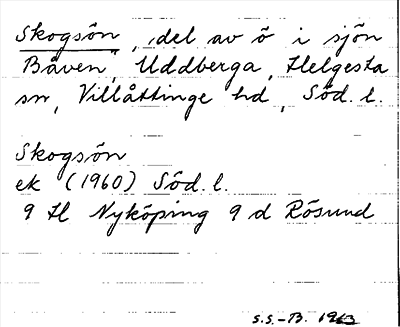 Skogsön, del av ö i sjön
Båven, Uddberga, Helgesta
sn, Villåttinge hd, Söd. l.
Skogsön
ek (1960) Söd. l.
9 H Nyköping 9 d Rösund
S.S.-B. 1963